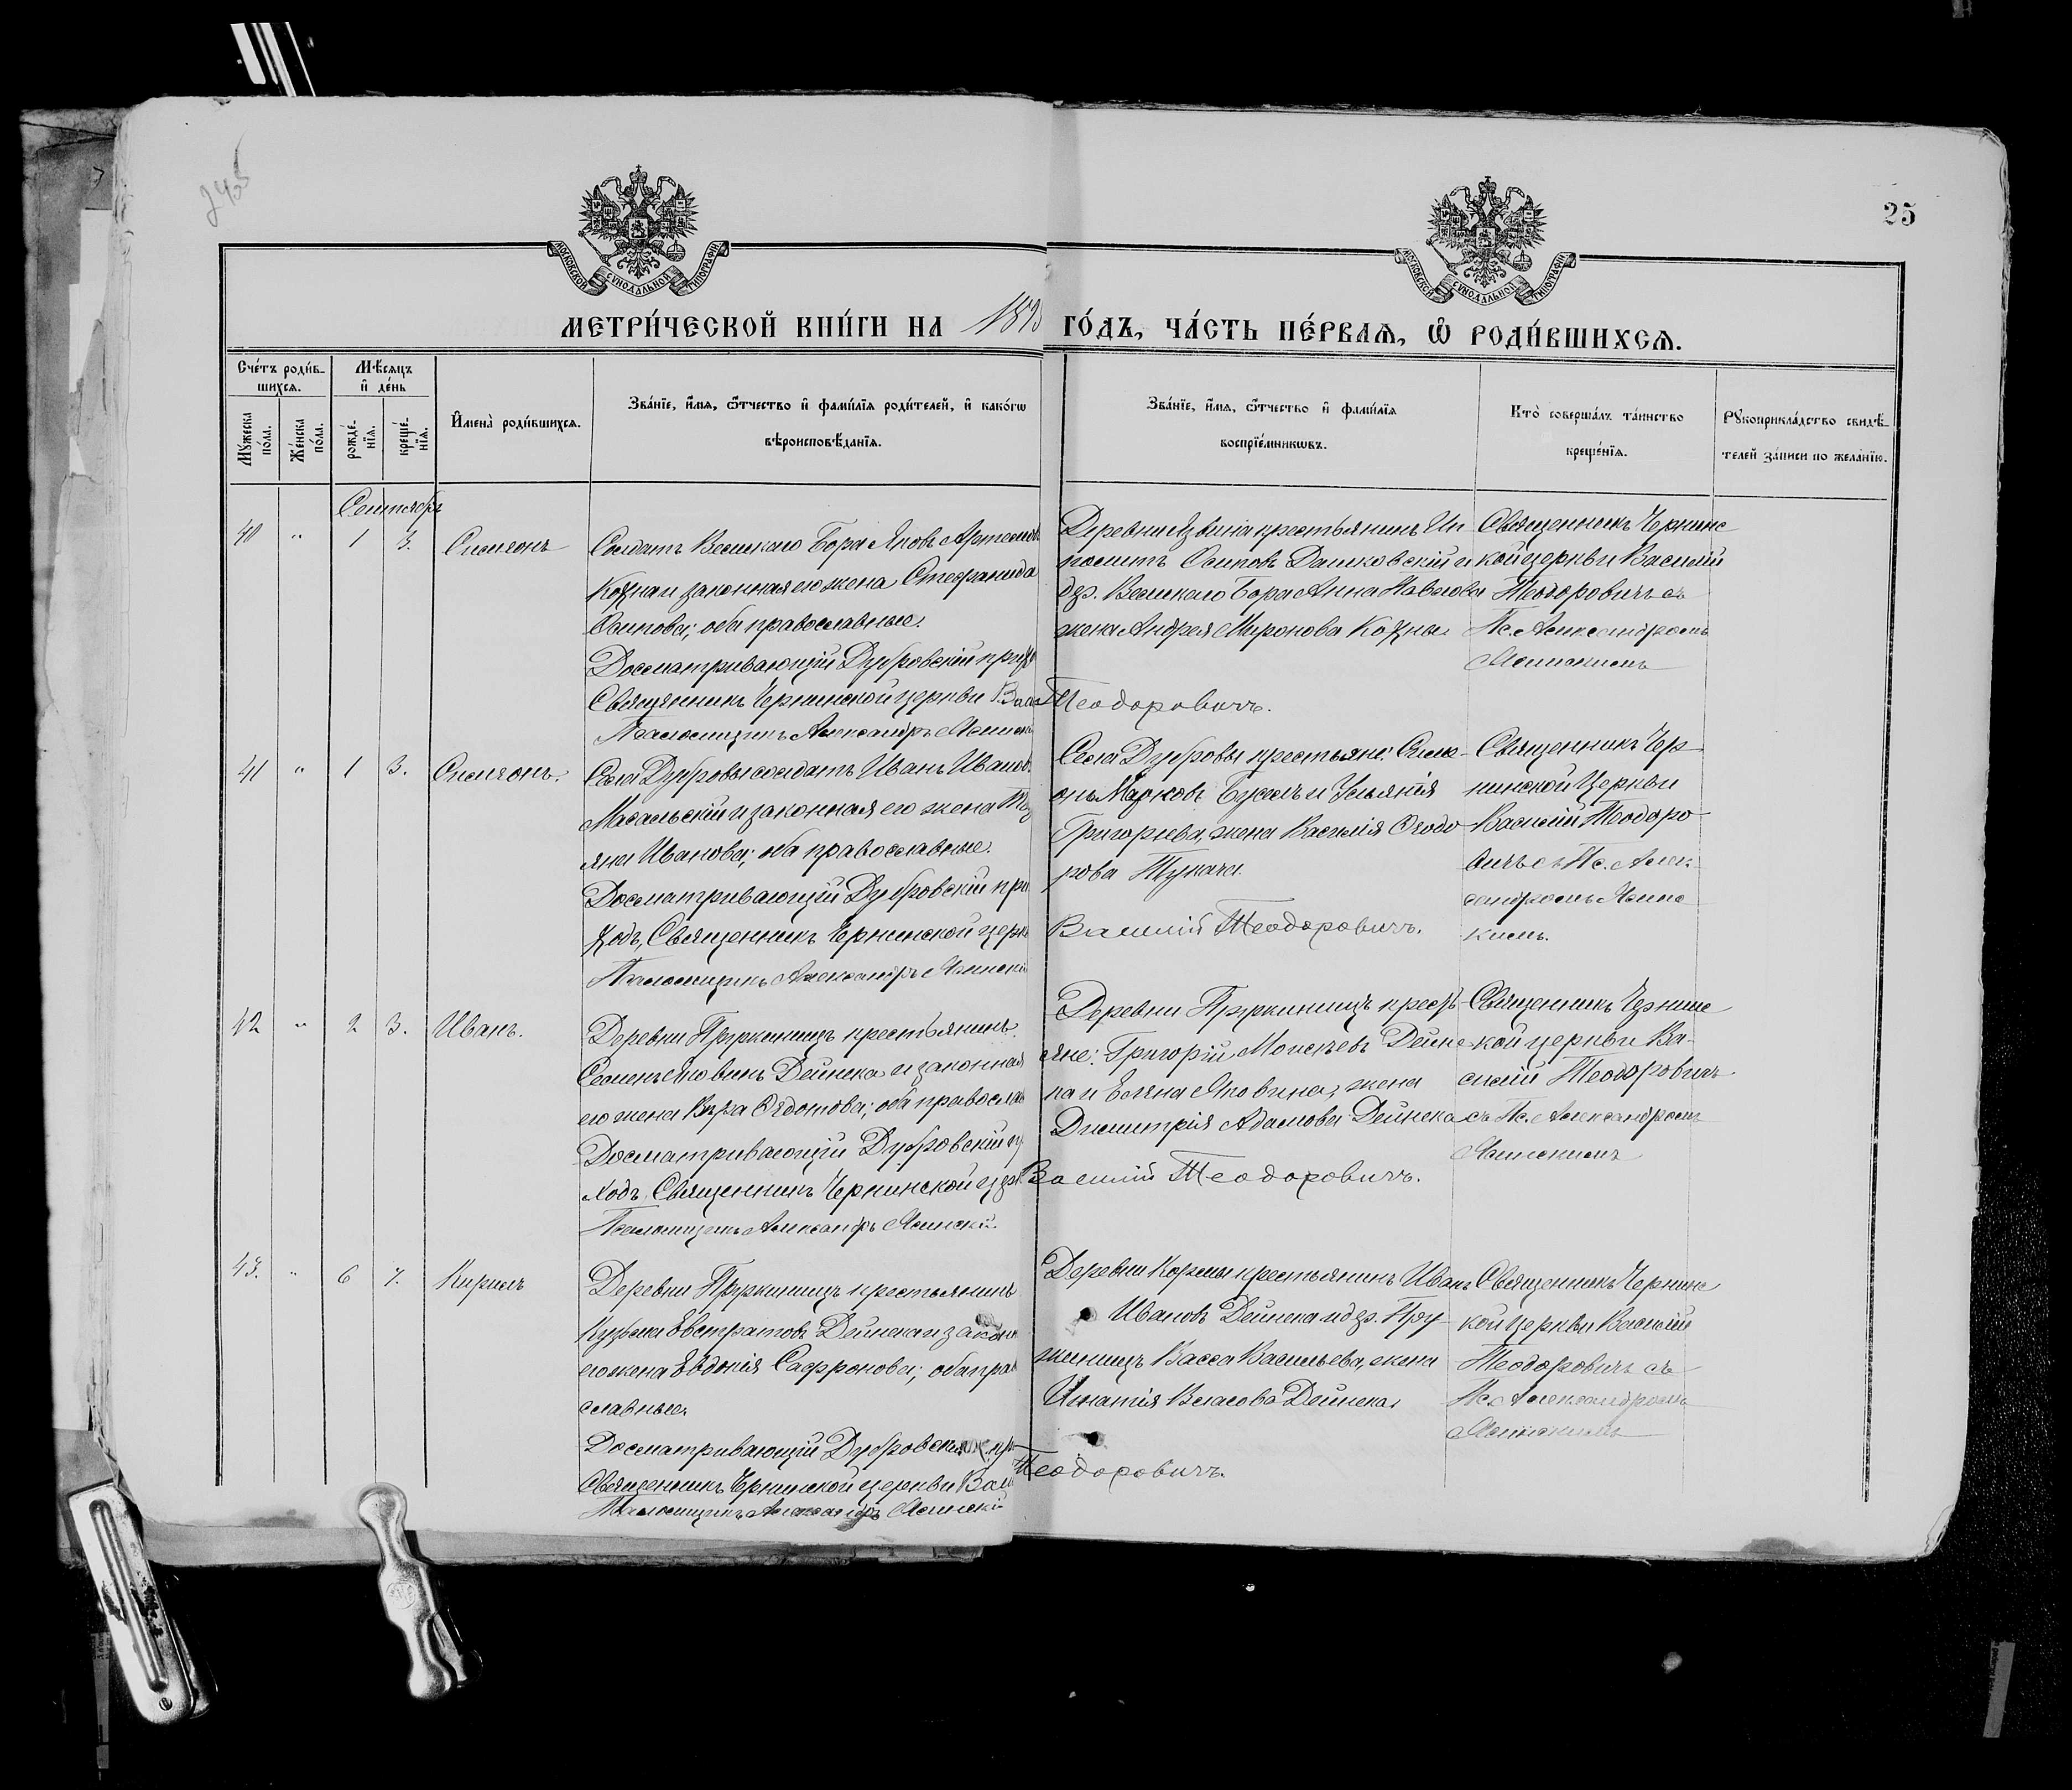 245
25
МОСКОВСКОЙ СУНОДАЛЬНОЙ ТИПОГРАФІИ
МОСКОВСКОЙ СУНОДАЛЬНОЙ ТИПОГРАФІИ
МЕТРИ́ЧЕСКОЙ КНИ́ГИ НА 189
ГО́ДЪ, ЧА́СТЬ ПЕ́РВАѦ, Ѡ҆ РОДИ́ВШИХСѦ.
Счётъ роди́в-
шихсѧ.
Мѣ́сѧцъ
и҆ де́нь
Мꙋ́жеска
по́ла.
Же́нска
по́ла.
рожде́-
нїѧ.
креще́-
нїѧ.
И҆мена̀ роди́вшихсѧ.
Зва́нїе, и҆́мѧ, ѻ҆́тчество и҆ фами́лїѧ роди́телей, и҆ како́гѡ
вѣроисповѣ́данїѧ.
Зва́нїе, и҆́мѧ, ѻ҆́тчество и҆ фами́лїѧ
воспрїе́мникѡвъ.
Кто̀ соверша́лъ та́инство
креще́нїѧ.
Рꙋкоприкла́дство свидѣ́-
телей за́писи по жела́нїю.
Сентябрь
40 " 1 3. Симеонъ
Солдатъ Великаго Бора Яковъ Артемов
Козна и законная его жена Стефанида
Осипова; оба православные.
Досматривающій Дубровскій прих
Священникъ Чернинской церкви Васи
Псаломщикъ Александръ Ясинскі
Деревни крестьянинъ Ип
политъ Осиповъ Дашковскій и
дер. Великаго Бора Анна Павлова
жена Андрея Миронова Козны.
Теодоровичъ.
Священникъ Чернинс
кой церкви Василій
Теодоровичъ съ
Пс. Александромъ
Ясинскимъ
41 " 1 3. Симеонъ.
Села Дубровы солдатъ Иванъ Иванов
Масальскій и законная его жена
яна Иванова; оба православные.
Досматривающій Дубровскій при
ходъ, Священникъ Чернинской церк
Псаломщикъ Александръ Ясинскій
Села Дубровы крестьяне: Симе-
онъ Марковъ Бусел и Ульянія
Григорьева, жена Василія Ѳеодо-
рова Тукача.
Василій Теодоровичъ.
Священникъ Чер-
нинской Церкви
Василій Теодоро-
вичъ съ Пс. Алек-
сандромъ Ясинс
кимъ.
42 " 2 3. Иванъ.
Деревни Пружиницъ крестьянинъ
Семенъ Яковинъ Дейнека и законная
его жена Вѣра Ѳедотова; оба православ
Досматривающій Дубровскій п
ходъ, Священникъ Чернинской церк
Псаломщикъ Александръ Ясинскій.
Деревни Пружиницъ кресть-
яне: Григорій Моисѣевъ Дейне
ка и Елена Яковина, жена
Димитрія Адамова Дейнека
Василій Теодоровичъ.
Священникъ Чернинс
кой церкви Ва-
силій Теодоровичъ
съ Пс. Александромъ
Ясинскимъ
43. " 6 7. Кирилъ
Деревни Пружиницъ крестьянинъ
Кузьма Евстратовъ Дейнека и закон
его жена Евдокія Сафронова; оба прав
славные.
Досматривающій Дубровскій пр
Священникъ Чернинской церкви Васи
Псаломщикъ Александръ Ясинскій
Деревни Кормы крестьянинъ Иванъ
Ивановъ Дейнека и дер. Пру-
жиницъ Васса Васильева, жена
Игнатія Власова Дейнека.
Теодоровичъ.
Священникъ Чернинс
кой церкви Василій
Теодоровичъ съ
Пс. Александромъ
Ясинскимъ